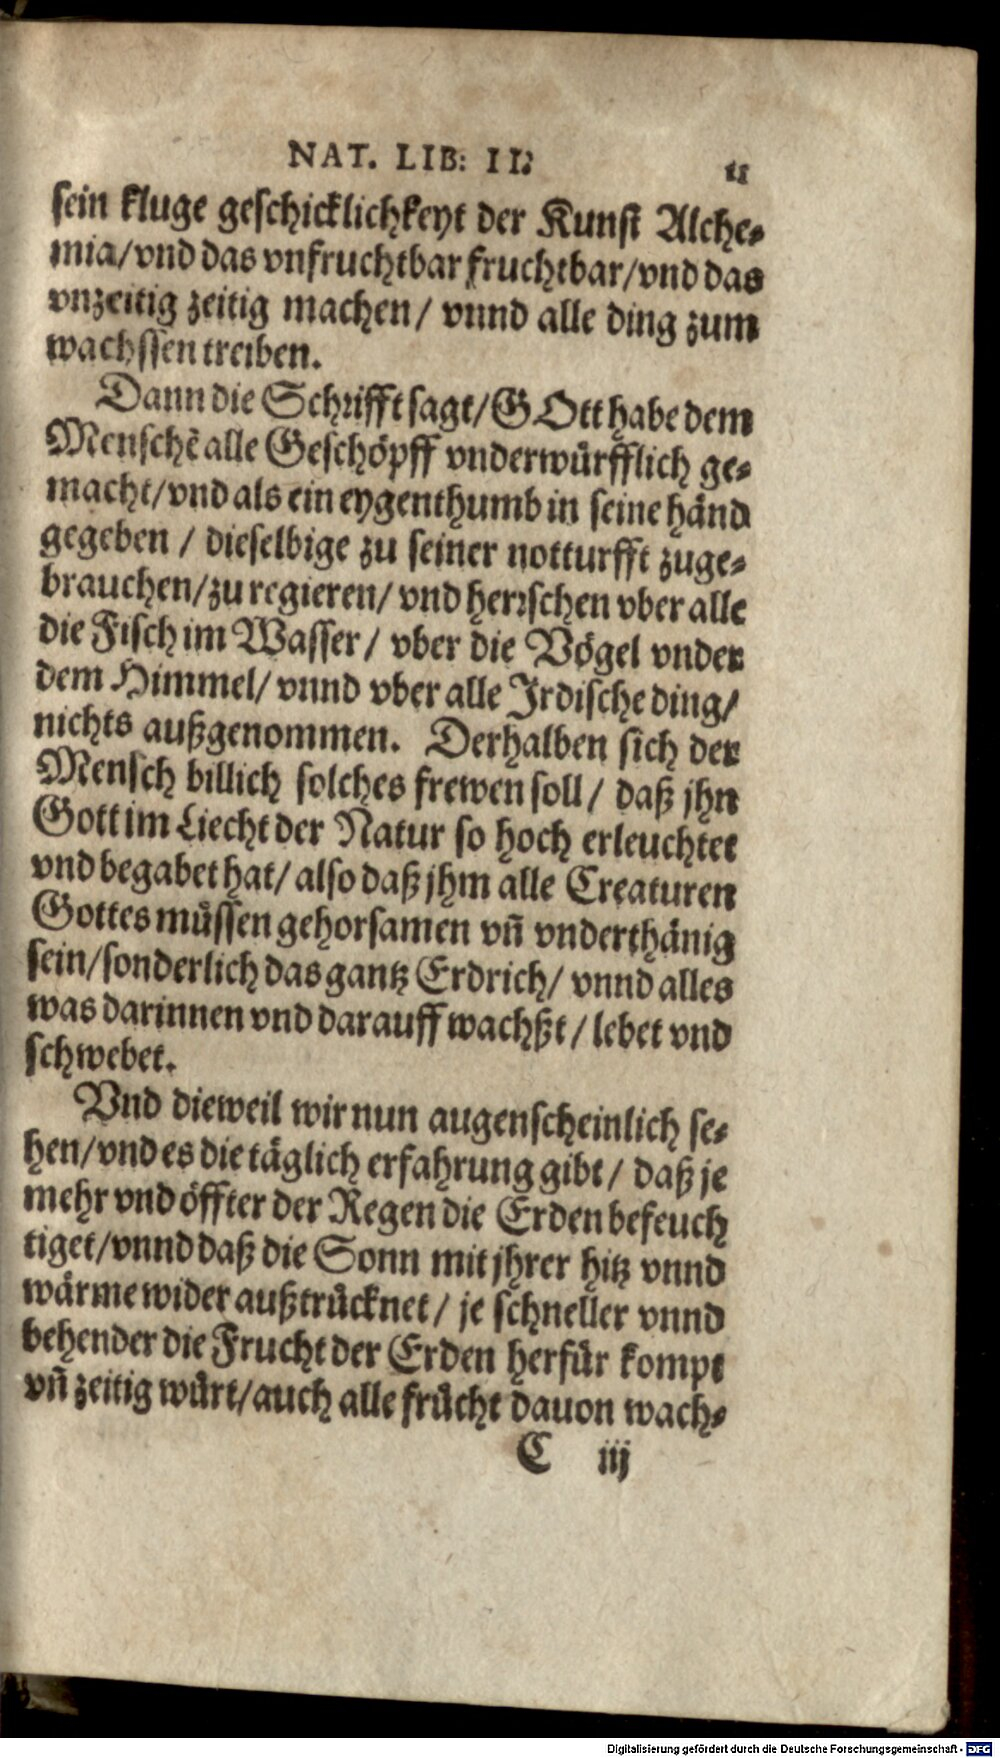 NAT. LIB: II.
11
sein kluge geschicklichkeyt der Kunst Alche-
mia/vnd das vnfruchtbar fruchtbar/vnd das
vnzeitig zeitig machen/ vnnd alle ding zum
wachssen treiben.
Dann die Schrifft sagt/GOtt habe dem
Menschẽ alle Geschöpff vnderwürfflich ge-
macht/vnd als ein eygenthumb in seine händ
gegeben / dieselbige zu seiner notturfft zuge-
brauchen/zu regieren/ vnd herrschen vber alle
die Fisch im Wasser/ vber die Vögel vnder
dem Himmel/ vnnd vber alle Irdische ding/
nichts außgenommen. Derhalben sich der
Mensch billich solches frewen soll/ daß jhn
Gott im Liecht der Natur so hoch erleuchtet
vnd begabet hat/ also daß jhm alle Creaturen
Gottes müssen gehorsamen vñ vnderthänig
sein/sonderlich das gantz Erdrich/ vnnd alles
was darinnen vnd darauff wachßt/ lebet vnd
schwebet.
Vnd dieweil wir nun augenscheinlich se-
hen/vnd es die täglich erfahrung gibt/ daß je
mehr vnd öffter der Regen die Erden befeuch
tiget/vnnd daß die Sonn mit jhrer hitz vnnd
wärme wider außtrücknet/ je schneller vnnd
behender die Frucht der Erden herfür kompt
vñ zeitig würt/auch alle frücht dauon wach-
C iij
Digitalisierung gefördert durch die Deutsche Forschungsgemeinschaft - DFG